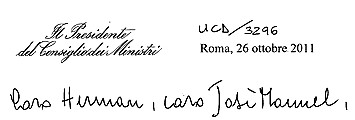 Il Presidente
del Consiglio dei Ministri
UCD/3296
Roma, 26 ottobre 2011
Caro Herman, caro José Manuel,